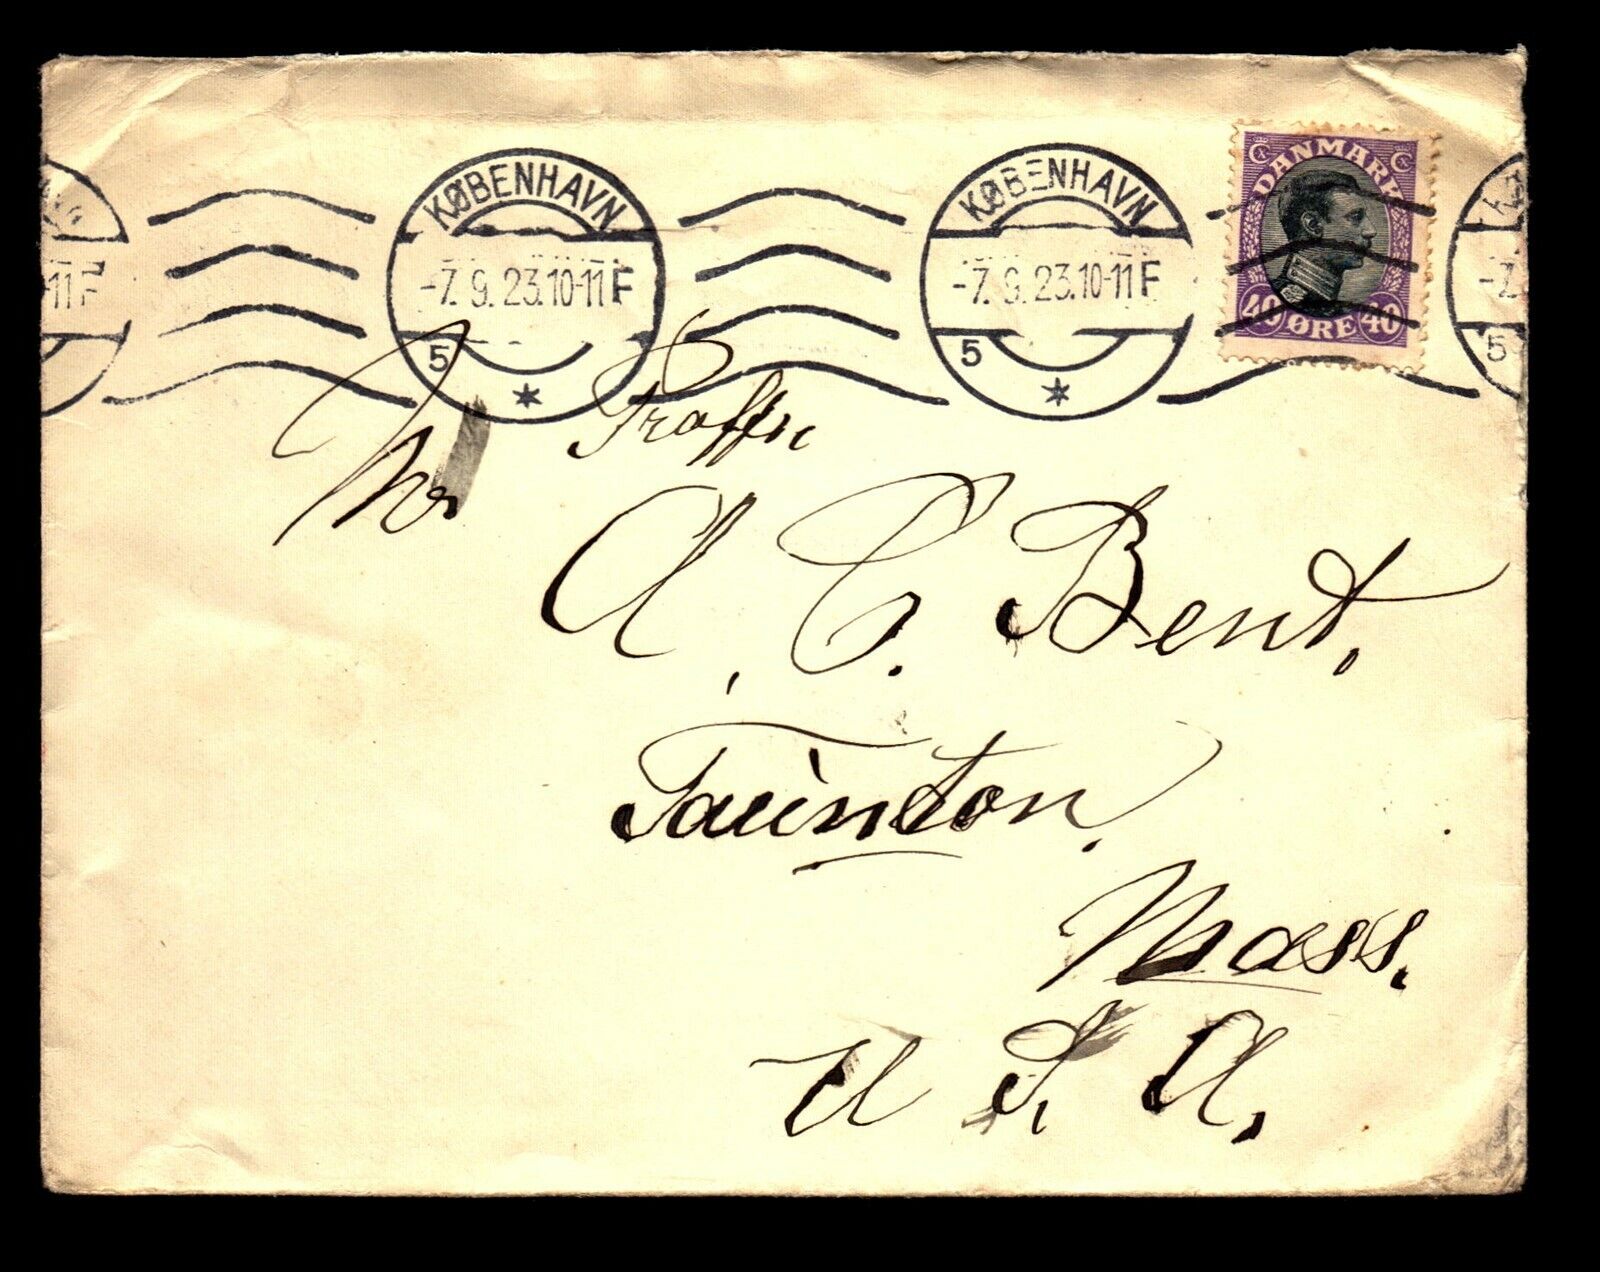 KØBENHAVN KØBENHAVN
-7. 9. 23. 10-11 F -7. 9. 23. 10-11 F
11 F
5 * 5 * 5
DANMARK
40 ØRE 40
A. C. Bent,
Taunton,
Mass.
U. S. A.